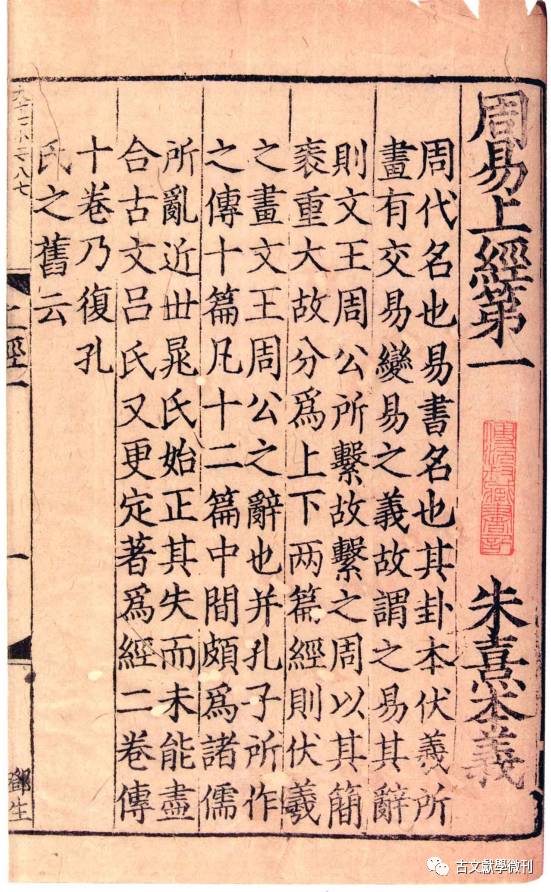 周易上經第一
朱熹本義
周代名也易書名也其卦本伏羲所
畫有交易變易之義故謂之易其辭
則文王周公所繫故繫之周以其簡
袠重大故分爲上下两篇經則伏羲
之畫文王周公之辭也并孔子所作
之傳十篇凡十二篇中間頗爲諸儒
所亂近世晁氏始正其失而未能盡
合古文吕氏又更定著爲經二卷傳
十卷乃復孔
氏之舊云
上經一
一
鄧生
古文獻學微刊